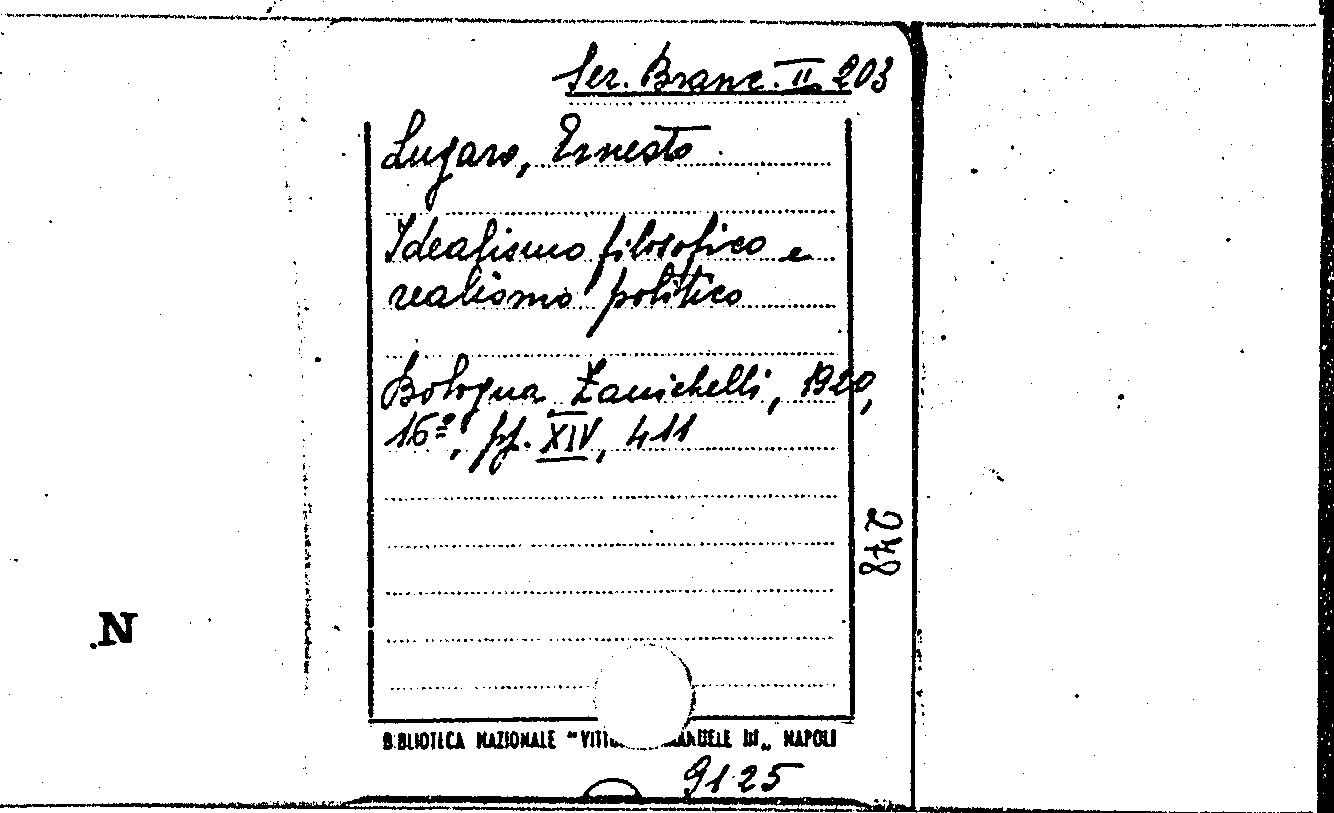 Ser. Branc. II 203
Lugaro, Ernesto
Idealismo filosofico e
realismo politico
Bologna, Zanichelli, 1920,
16º, pp. XIV, 411
248
N
BIBLIOTECA NAZIONALE "VITT ANUELE III„ NAPOLI
9125